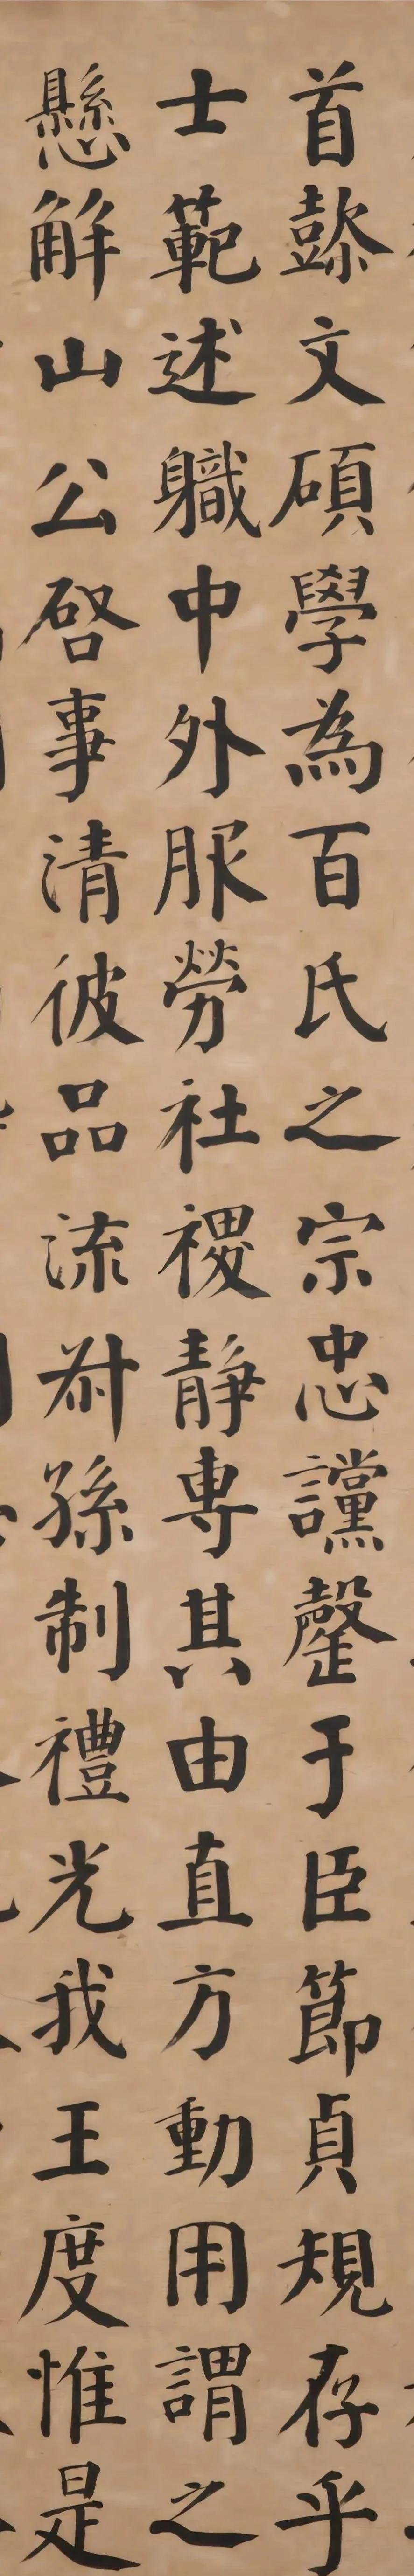 首懿文碩學為百氏之宗忠讜罄于臣節貞規存乎
士範述軄中外服勞社稷靜專其由直方動用謂之
懸解山公啓事清彼品流叔孫制禮光我王度惟是